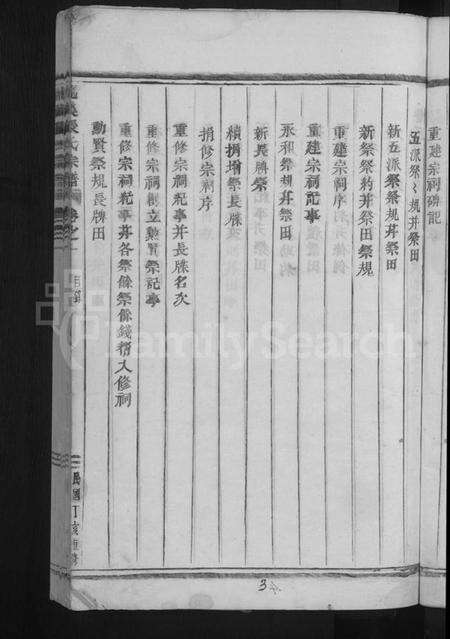 重建宗祠碑記
五派祭祭規并祭田
新五派祭祭規并祭田
新祭祭約并祭田祭規
重建宗祠序
重建宗祠記事
永和祭規并祭田
新興牌祭
續捐增祭長牌田
捐修宗祠序
重修宗祠紀事并長牌名次
重修宗祠創立勲賢祭記事
重修宗祠紀事并各祭餘祭餘錢捐入修祠
勲賢祭規長牌田
氏宗譜 卷之一
民國丁亥重修
FamilySearch
34